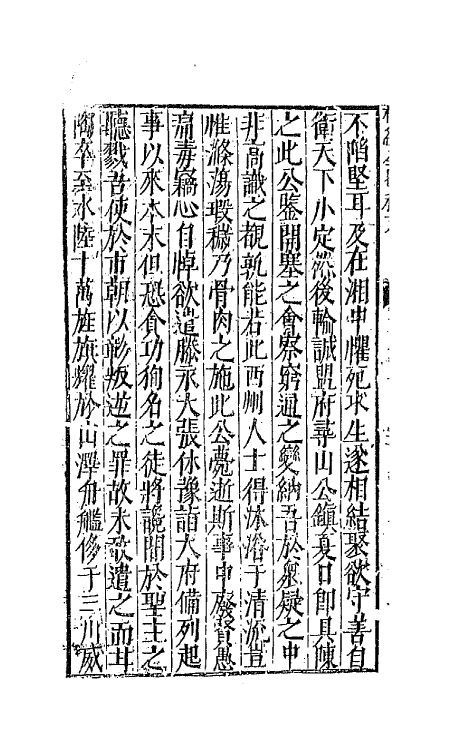 不陷堅耳及在湘中懼死求生遂相結聚欲守善自
衛天下小定然後輸誠盟府尋山公鎮夏口即具陳
之此公鑒開塞之會察窮通之變納吾於衆疑之中
非高識之覩孰能若此西州人士得沐浴于清流豈
惟滌蕩瑕穢乃骨肉之施此公薨逝斯事中廢賢愚
痛毒竊心自悼欲遣滕永文張休豫詣大府備列起
事以來本末但恐貪功狥名之徒將讒間於聖主之
聽戮吾使於市朝以彰叛逆之罪故未敢遣之而甘
陶卒至水陸十萬旌旗耀於山澤舟艦侈于三川威